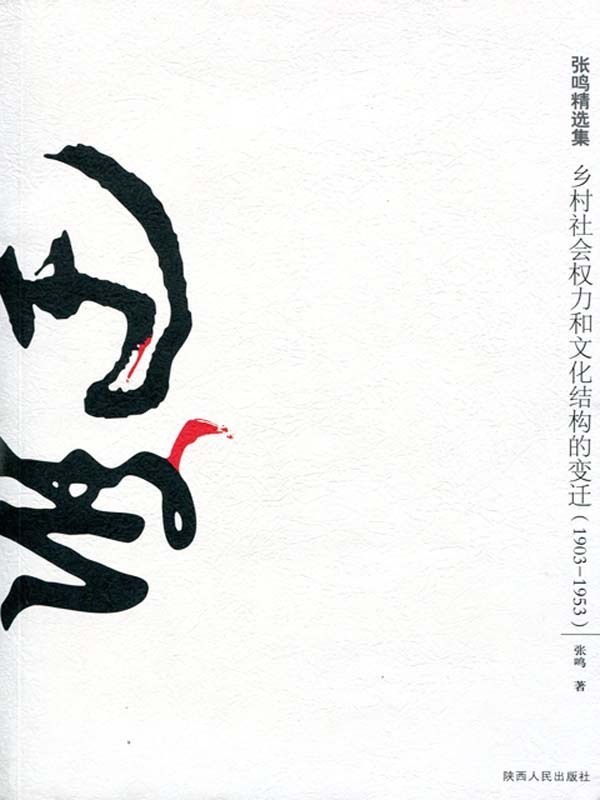 张鸣精选集
乡村社会权力和文化结构的变迁(1903-1953)
张鸣 著
陕西人民出版社